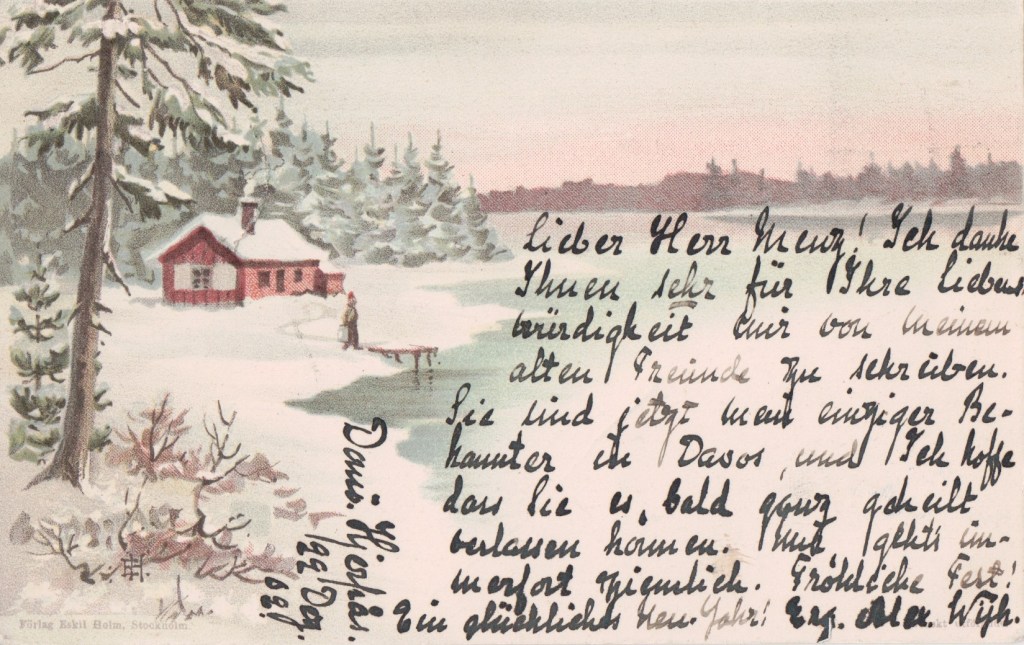 Lieber Herr Menz! Ich danke
Ihnen sehr für Ihre Liebens
würdigkeit mir von meinem
alten Freunde zu schreiben.
Sie sind jetzt mein einziger Be-
kannter in Davos und Ich hoffe
dass Sie es bald ganz geheilt
verlassen können. Mir geht's im-
merfort ziemlich. Fröhliche Fest!
Ein glückliches Neu-Jahr!
Hjerpås.
19 22/Dez
EH.
Förlag Eskil Holm, Stockholm.